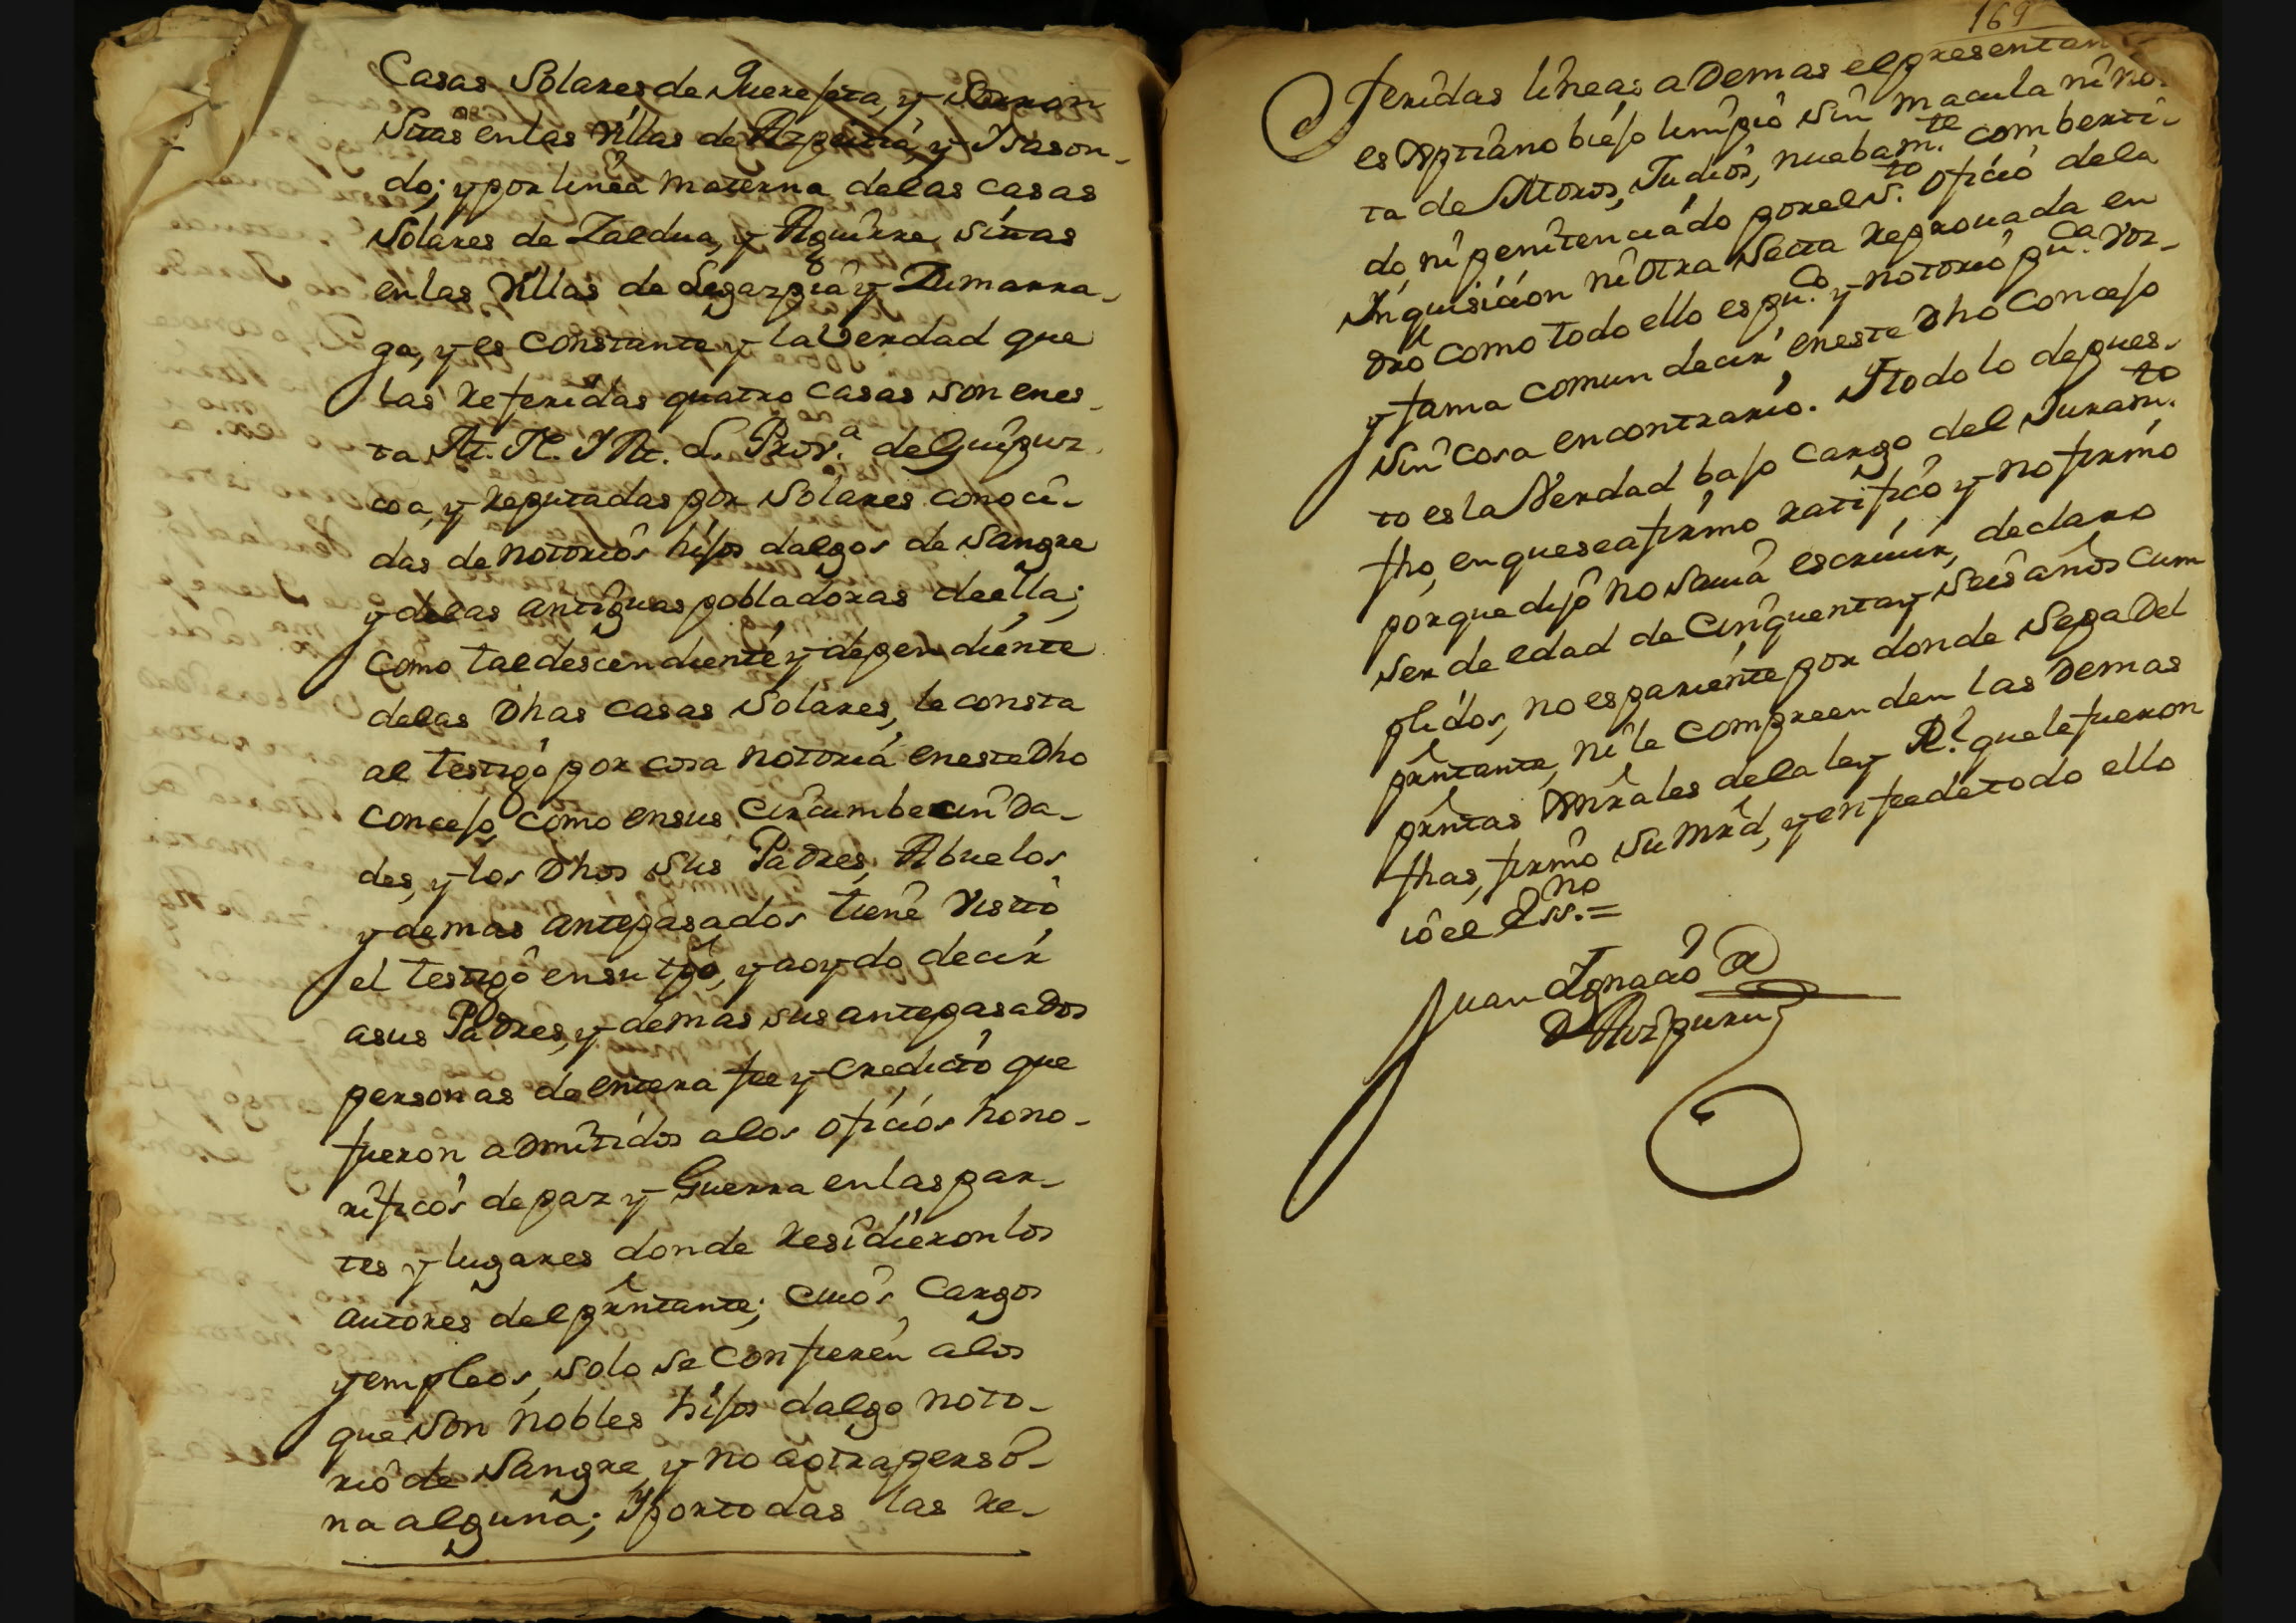 Casas Solares de Juerejeta, y
Sitas en las Villas de Azpeitia, y Ysason-
do; y por linea materna de las casas
Solares de Zaldua, y Aguirre sitas
en las Villas de Legazpia y Zumarra-
ga, y es constante y la Verdad que
las referidas quatro casas son en es-
ta M. N. Y M. L. Prov.ª de Guipuz-
coa, y reputadas por Solares conoci-
das de notorios hijos dalgos de sangre
y de las antiguas pobladoras de ella;
como tal descendiente y dependiente
de las Dhas casas Solares, le consta
al testigo por cosa notoria en este Dho
concejo, como en sus circumbecinda-
des, y los Dhos sus Padres, Abuelos
y demas antepasados tiene visto
el testigo en su tpô, y aoydo decir
a sus Padres, y demas sus antepasados
personas de entera fee y credicto que
fueron admitidos a los oficios hono-
rificos de paz y Guerra en las par-
tes y lugares donde residieron los
autores del prêntante; cuios Cargos
y empleos, solo se confieren a los
que son nobles hijos dalgo noto-
rio de Sangre, y no a otra perso-
na alguna; Y por todas las re-
169
feridas lineas a Demas el presentan
es Xptiano biejo limpio sin macula ni no-
ta de Moros, Judios, nuebam.te comberti-
do, ni penitenciado por el S.to oficio de la
Inquisicion ni otra Secta reprouada en
dro como todo ello es pu.co y notorio pu.ca voz-
y fama comun decir en este Dho Concejo
sin cosa en contrario. Y todo lo depues-
to es la Verdad bajo cargo del Juram.to
fho, en que se afirmo ratifico y no firmo
porque dijo no sauia escriuir, declaro
ser de edad de cinquenta y seis años cum
plidos, no es pariente por donde sepa Del
prêntante, ni le compreenden las Demas
prêntas Gnrales de la ley R.l que le fueron
fhas, firmo su mrd, y en fee de todo ello
io el Ess.no =
Juan Ignacio
D Aizpuru